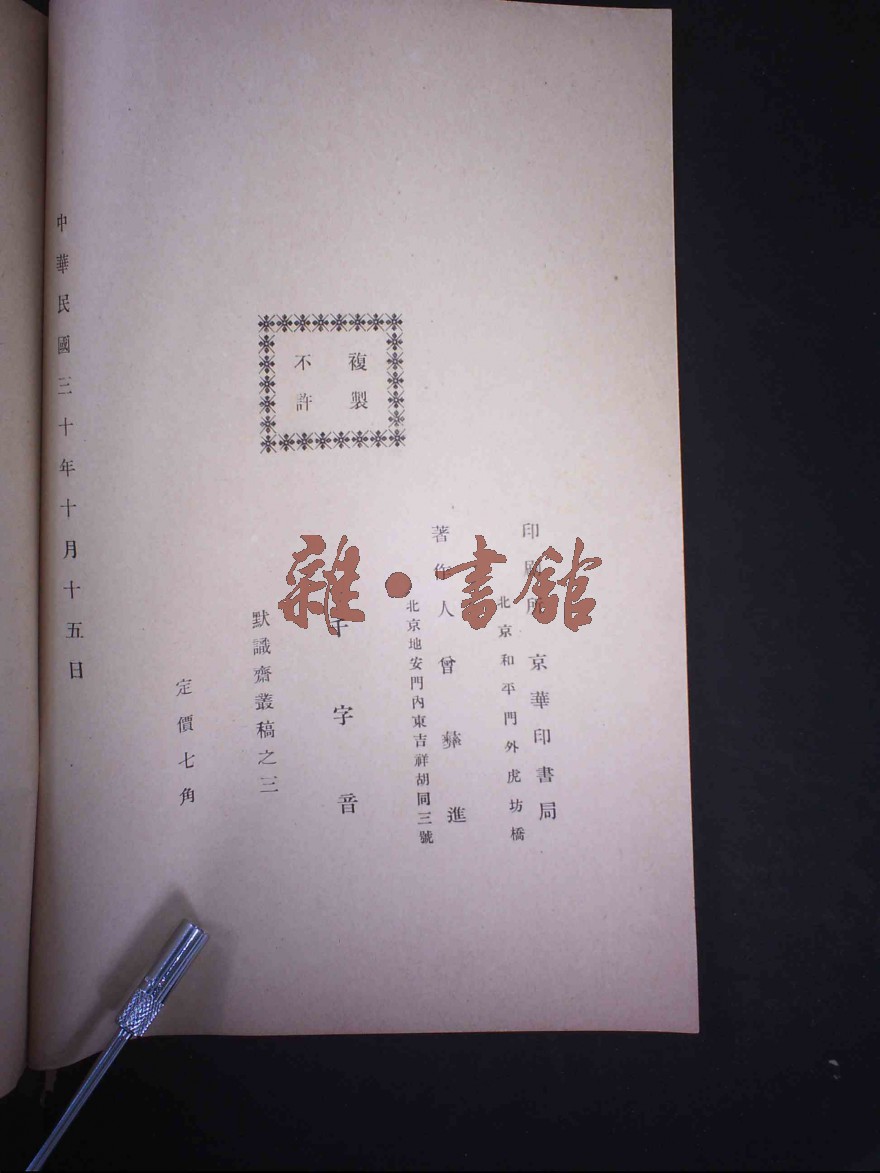 複製
不許
印刷所 京華印書局
北京和平門外虎坊橋
著作人 曾彝進
北京地安門內東吉祥胡同三號
千字音
默識齋叢稿之三
定價七角
中華民國三十年十月十五日
雜·書館